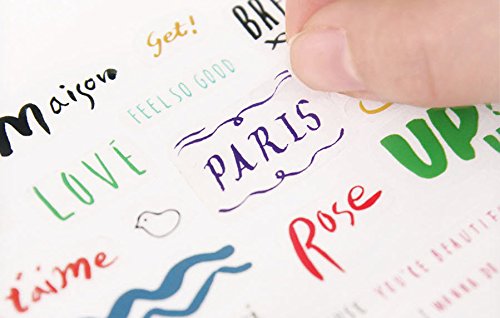 Get!
Maison
FEEL SO GOOD
LOVE
PARIS
UP
Rose
t'aime
YOU'RE BEAUTIF